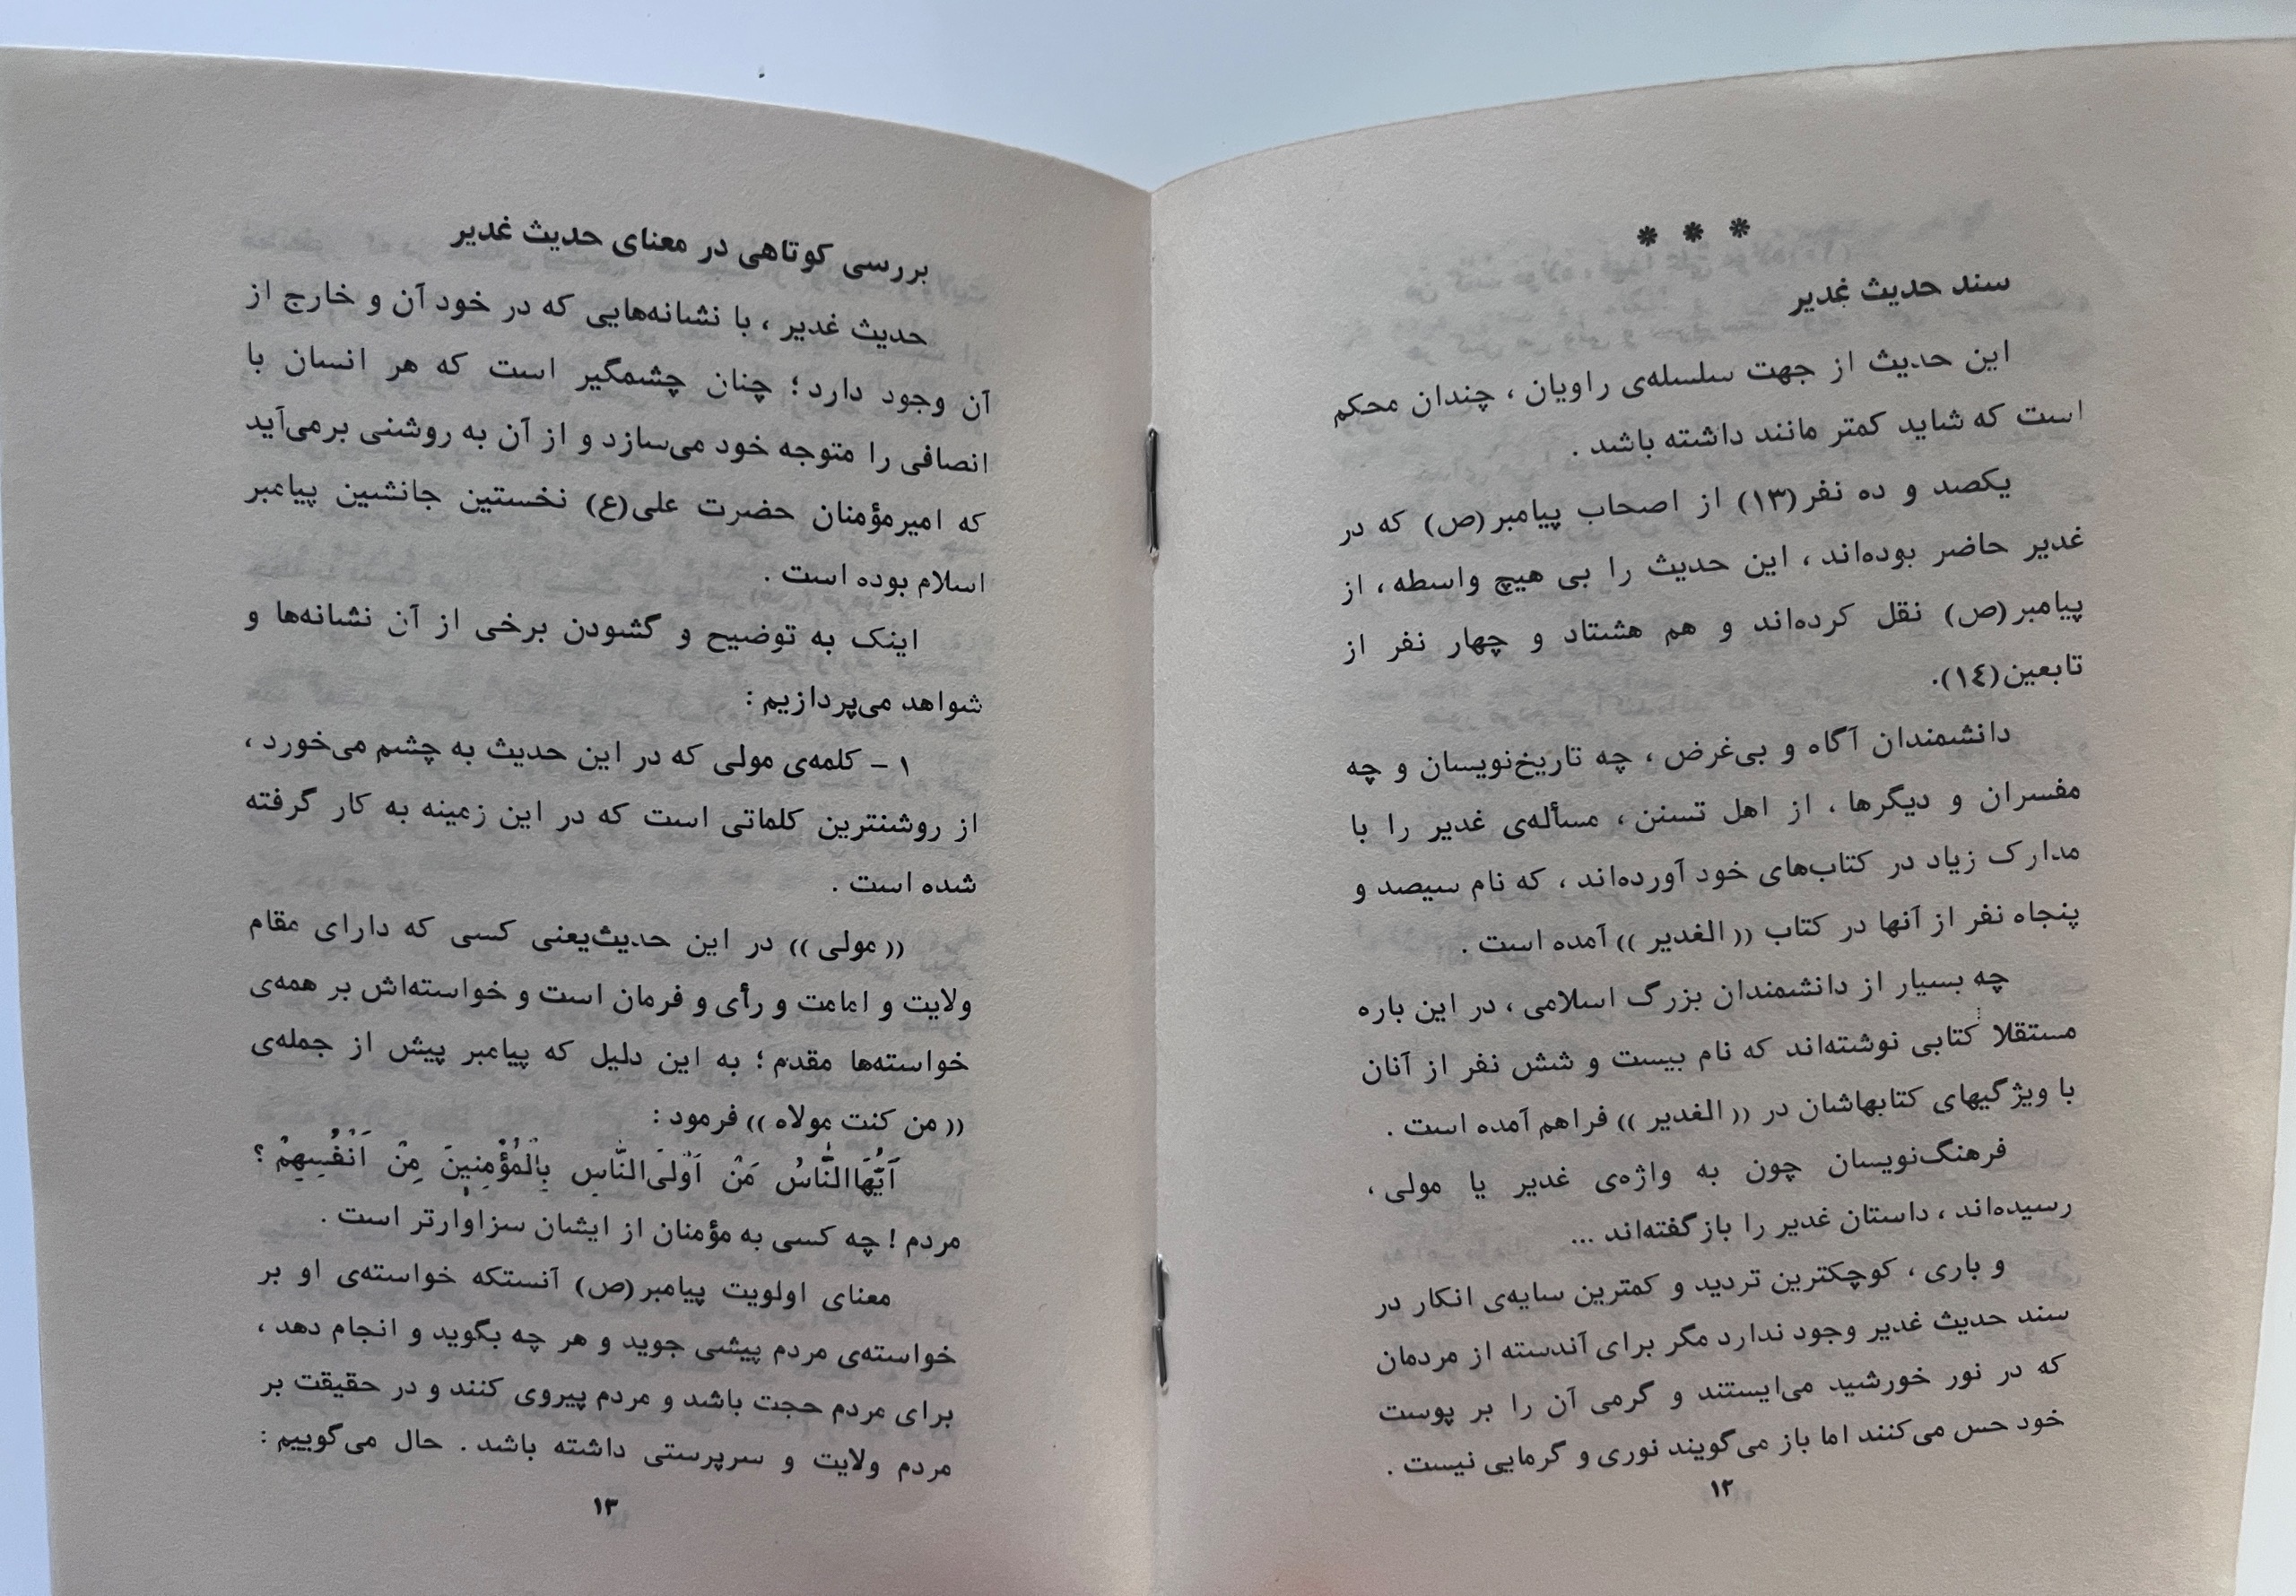 * * *
سند حدیث غدیر
این حدیث از جهت سلسله‌ی راویان ، چندان محکم
است که شاید کمتر مانند داشته باشد .
یکصد و ده نفر(۱۳) از اصحاب پیامبر(ص) که در
غدیر حاضر بوده‌اند ، این حدیث را بی هیچ واسطه ، از
پیامبر(ص) نقل کرده‌اند و هم هشتاد و چهار نفر از
تابعین(۱٤).
دانشمندان آگاه و بی‌غرض ، چه تاریخ‌نویسان و چه
مفسران و دیگرها ، از اهل تسنن ، مسأله‌ی غدیر را با
مدارک زیاد در کتاب‌های خود آورده‌اند ، که نام سیصد و
پنجاه نفر از آنها در کتاب (( الغدیر )) آمده است .
چه بسیار از دانشمندان بزرگ اسلامی ، در این باره
مستقلا کتابی نوشته‌اند که نام بیست و شش نفر از آنان
با ویژگیهای کتابهاشان در (( الغدیر )) فراهم آمده است .
فرهنگ‌نویسان چون به واژه‌ی غدیر یا مولی ،
رسیده‌اند ، داستان غدیر را بازگفته‌اند ...
و باری ، کوچکترین تردید و کمترین سایه‌ی انکار در
سند حدیث غدیر وجود ندارد مگر برای آندسته از مردمان
که در نور خورشید می‌ایستند و گرمی آن را بر پوست
خود حس می‌کنند اما باز می‌گویند نوری و گرمایی نیست .
۱۲
بررسی کوتاهی در معنای حدیث غدیر
حدیث غدیر ، با نشانه‌هایی که در خود آن و خارج از
آن وجود دارد ؛ چنان چشمگیر است که هر انسان با
انصافی را متوجه خود می‌سازد و از آن به روشنی برمی‌آید
که امیرمؤمنان حضرت علی(ع) نخستین جانشین پیامبر
اسلام بوده است .
اینک به توضیح و گشودن برخی از آن نشانه‌ها و
شواهد می‌پردازیم :
۱ – کلمه‌ی مولی که در این حدیث به چشم می‌خورد ،
از روشنترین کلماتی است که در این زمینه به کار گرفته
شده است .
(( مولی )) در این حدیث‌یعنی کسی که دارای مقام
ولایت و امامت و رأی و فرمان است و خواسته‌اش بر همه‌ی
خواسته‌ها مقدم ؛ به این دلیل که پیامبر پیش از جمله‌ی
(( من کنت مولاه )) فرمود :
اَیُّهَاالنّاسُ مَنْ اَوْلَی‌النّاسِ بِالْمُؤْمِنِینَ مِنْ اَنْفُسِهِمْ ؟
مردم ! چه کسی به مؤمنان از ایشان سزاوارتر است .
معنای اولویت پیامبر(ص) آنستکه خواسته‌ی او بر
خواسته‌ی مردم پیشی جوید و هر چه بگوید و انجام دهد ،
برای مردم حجت باشد و مردم پیروی کنند و در حقیقت بر
مردم ولایت و سرپرستی داشته باشد . حال می‌گوییم :
۱۳